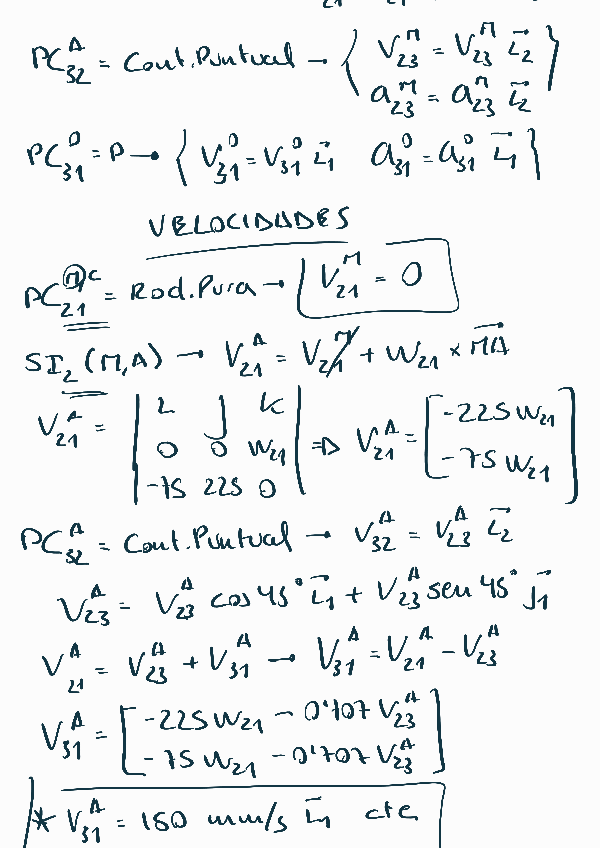 PC₃₂ᴬ = Cont. Puntual → { V₂₃ᴹ = V₂₃ᴹ i₂
a₂₃ᴹ = a₂₃ᴹ i₂ }
PC₃₁ᴰ = P → { V₃₁ᴰ = V₃₁ᴰ i₁ a₃₁ᴰ = a₃₁ᴰ i₁ }
VELOCIDADES
PC₂₁ᴹᶜ = Rod. Pura → V₂₁ᴹ = 0
SI₂ (M, A) → V₂₁ᴬ = V₂₁ᴹ + W₂₁ × MA
V₂₁ᴬ = | i j k
0 0 W₂₁
-75 225 0 | ⇒ V₂₁ᴬ = [ -225 W₂₁
-75 W₂₁ ]
PC₃₂ᴬ = Cont. Puntual → V₃₂ᴬ = V₂₃ᴬ i₂
V₂₃ᴬ = V₂₃ᴬ cos 45° i₁ + V₂₃ᴬ sen 45° j₁
V₂₁ᴬ = V₂₃ᴬ + V₃₁ᴬ → V₃₁ᴬ = V₂₁ᴬ - V₂₃ᴬ
V₃₁ᴬ = [ -225 W₂₁ - 0'707 V₂₃ᴬ
-75 W₂₁ - 0'707 V₂₃ᴬ ]
* V₃₁ᴬ = 150 mm/s i₁ cte